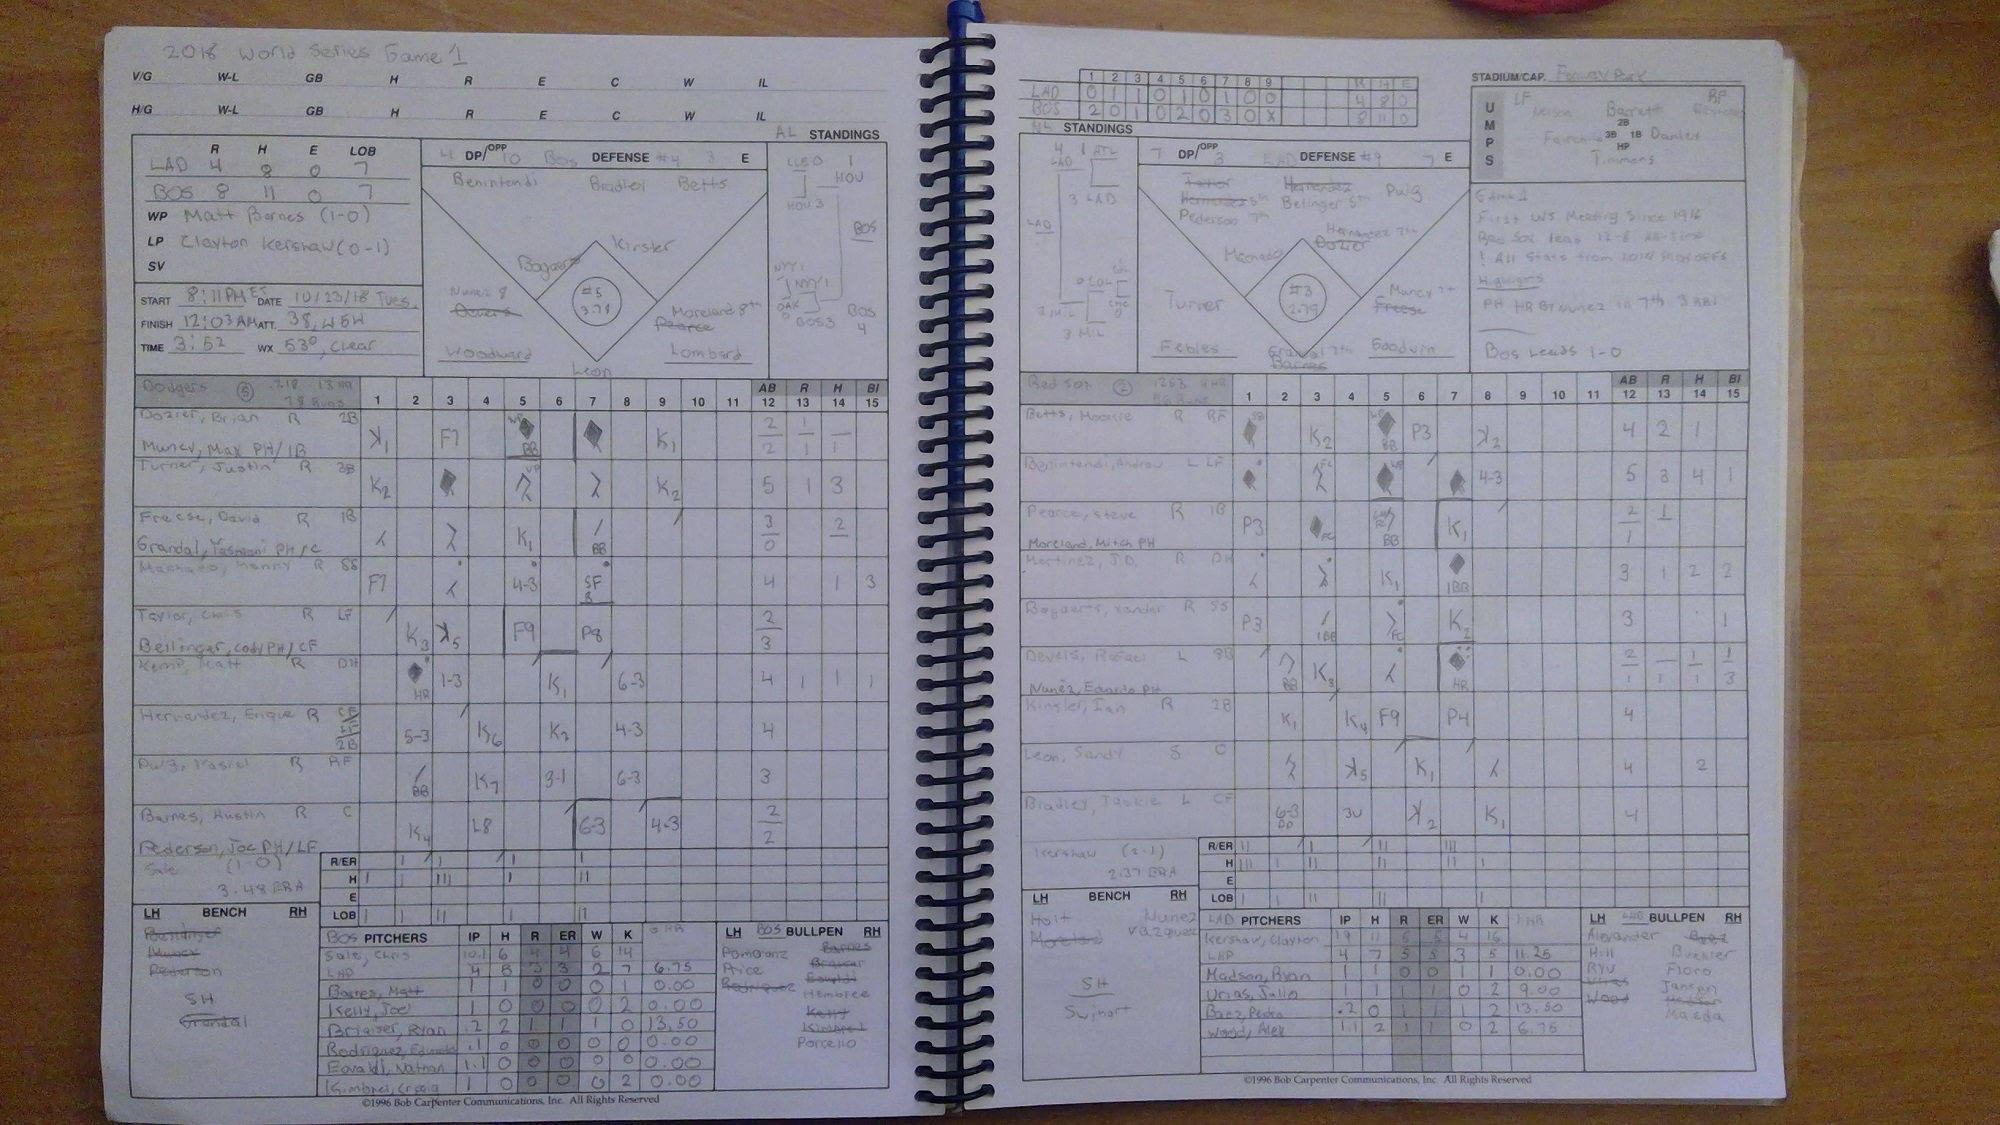 2018 World Series Game 1
V/G W-L GB H R E C W IL
H/G W-L GB H R E C W IL
AL STANDINGS
R H E LOB
LAD 4 8 0 7
BOS 8 11 0 7
WP Matt Barnes (1-0)
LP Clayton Kershaw (0-1)
SV
START 8:11PM ET DATE 10/23/18 Tues.
FINISH 12:03AM ATT. 38,454
TIME 3:52 WX 53°, Clear
4 DP/OPP 10 Bos DEFENSE #4 3 E
Benintendi Bradley Betts
Bogaerts Kinsler
Nunez 8 Moreland 8th
Devers Pearce
#5
Woodward Lombard
Leon
HOU
HOU 3
BOS
NYY 1
BOS 3
BOS 4
Dodgers
1 2 3 4 5 6 7 8 9 10 11 AB 12 R 13 H 14 BI 15
Dozier, Brian R 2B K1 F7 BB K1 2 1 —
Muncy, Max PH/1B 2 1 1
Turner, Justin R 3B K2 K2 5 1 3
Freese, David R 1B K1 BB 3 2
Grandal, Yasmani PH/C 0
Machado, Manny R SS F7 4-3 SF 8 4 1 3
Taylor, Chris R LF K3 K5 F9 P8 2
Bellinger, Cody PH/CF 3
Kemp, Matt R DH HR 1-3 K1 6-3 4 1 1 1
Hernandez, Enrique R CF LF 2B 5-3 K6 K2 4-3 4
Puig, Yasiel R RF BB K7 3-1 6-3 3
Barnes, Austin R C K4 L8 6-3 4-3 2
Pederson, Joc PH/LF 2
Sale (1-0)
3.48 ERA
R/ER
H
E
LOB
LH BENCH RH
Muncy
Pederson
SH
Grandal
BOS PITCHERS IP H R ER W K
Sale, Chris 10.1 6 4 4 6 14
LHP 4 8 3 3 2 7 6.75
Barnes, Matt 1 1 0 0 0 1 0.00
Kelly, Joe 1 0 0 0 0 2 0.00
Brasier, Ryan .2 2 1 1 1 0 13.50
Rodriguez, Eduardo .1 0 0 0 0 0 0.00
Eovaldi, Nathan 1.1 0 0 0 0 0 0.00
Kimbrel, Craig 1 0 0 0 0 2 0.00
LH BOS BULLPEN RH
Pomeranz Barnes
Price Brasier
Rodriguez Eovaldi
Hembree
Kelly
Kimbrel
Porcello
©1996 Bob Carpenter Communications, Inc. All Rights Reserved
1 2 3 4 5 6 7 8 9 R H E
LAD 0 1 1 0 1 0 1 0 0 4 8 0
BOS 2 0 1 0 2 0 3 0 X 8 11 0
STADIUM/CAP. Fenway Park
NL STANDINGS
UMPS
LF RF
Nelson Barrett
2B
3B 1B Danley
HP
Timmons
7 DP/OPP 3 LAD DEFENSE #9 7 E
Taylor Hernandez Puig
Hernandez 5th Bellinger 5th
Pederson 7th
Hernandez 7th
Machado Dozier
Turner Muncy 7th
Freese
#3
2.79
Febles Grandal 7th Goodwin
Barnes
ATL
LAD
3 LAD
LAD
COL
3 MIL
3 MIL
Game 1
First WS Meeting Since 1916
Red Sox lead 12-8 All-Time
! All Stats from 2018 Playoffs
Highlights
PH HR By Nunez in 7th 3 RBI
Bos Leads 1-0
Red Sox
1 2 3 4 5 6 7 8 9 10 11 AB 12 R 13 H 14 BI 15
Betts, Mookie R RF K2 BB P3 K2 4 2 1
Benintendi, Andrew L LF FC 4-3 5 3 4 1
Pearce, Steve R 1B P3 FC BB K1 2 1
Moreland, Mitch PH 1
Martinez, J.D. R DH K1 IBB 3 1 2 2
Bogaerts, Xander R SS P3 IBB FC K2 3 1
Devers, Rafael L 3B BB K3 HR 2 — 1 1
Nunez, Eduardo PH 1 1 1 3
Kinsler, Ian R 2B K1 K4 F9 P4 4
Leon, Sandy S C K5 K1 4 2
Bradley, Jackie L CF 6-3 DP 3U K2 K1 4
Kershaw (2-1)
2.37 ERA
R/ER
H
E
LOB
LH BENCH RH
Holt Nunez
Moreland Vazquez
SH
Swihart
LAD PITCHERS IP H R ER W K 1 HR
Kershaw, Clayton 19 11 5 5 4 16
LHP 4 7 5 5 3 5 11.25
Madson, Ryan 1 1 0 0 1 1 0.00
Urias, Julio 1 1 1 1 0 2 9.00
Baez, Pedro .2 0 1 1 1 2 13.50
Wood, Alex 1.1 2 1 1 0 2 6.75
LH LAD BULLPEN RH
Alexander Baez
Hill Buehler
Ryu Floro
Urias Jansen
Wood Madson
Maeda
©1996 Bob Carpenter Communications, Inc. All Rights Reserved